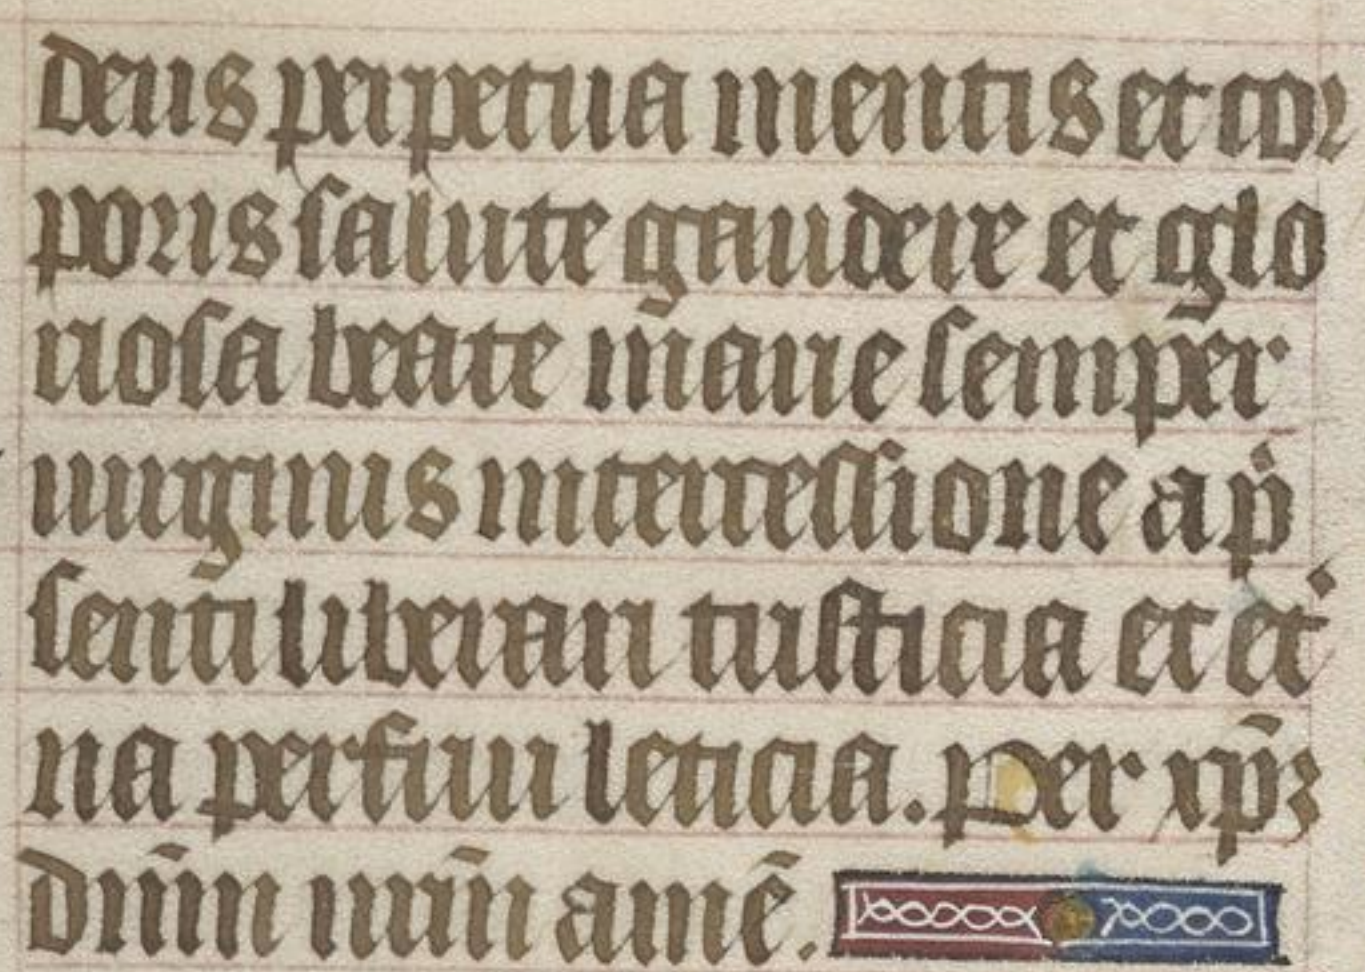 deus perpetua mentis et cor
poris salute gaudere et glo
riosa beate marie semper
uirginis intercessione a p̄
senti liberari tristicia et et͛
na perfrui leticia. Per xp̄ꝫ
dn̄m nr̄m amē.